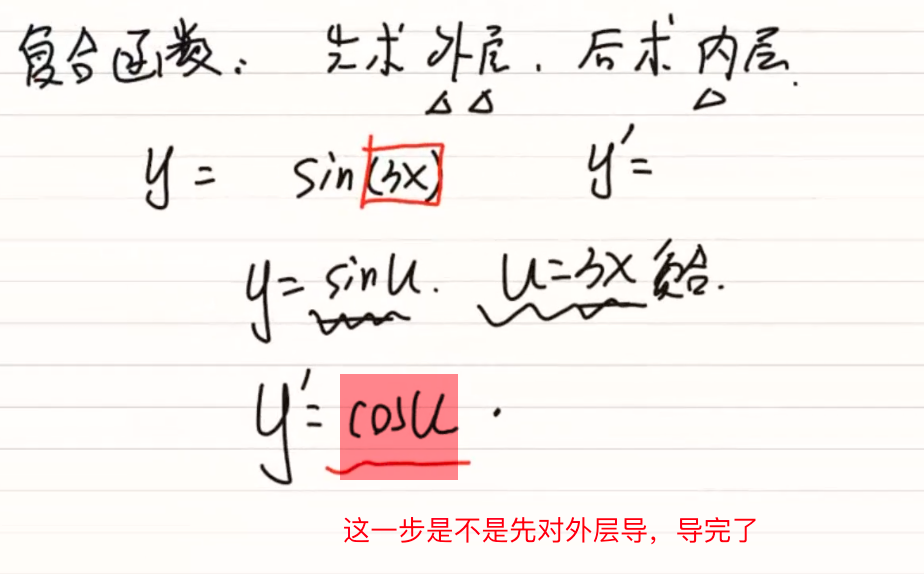 复合函数: 先求外层. 后求内层.
y = sin(3x) y'=
y = sinu. u=3x 复合.
y'= cosu ·
这一步是不是先对外层导，导完了